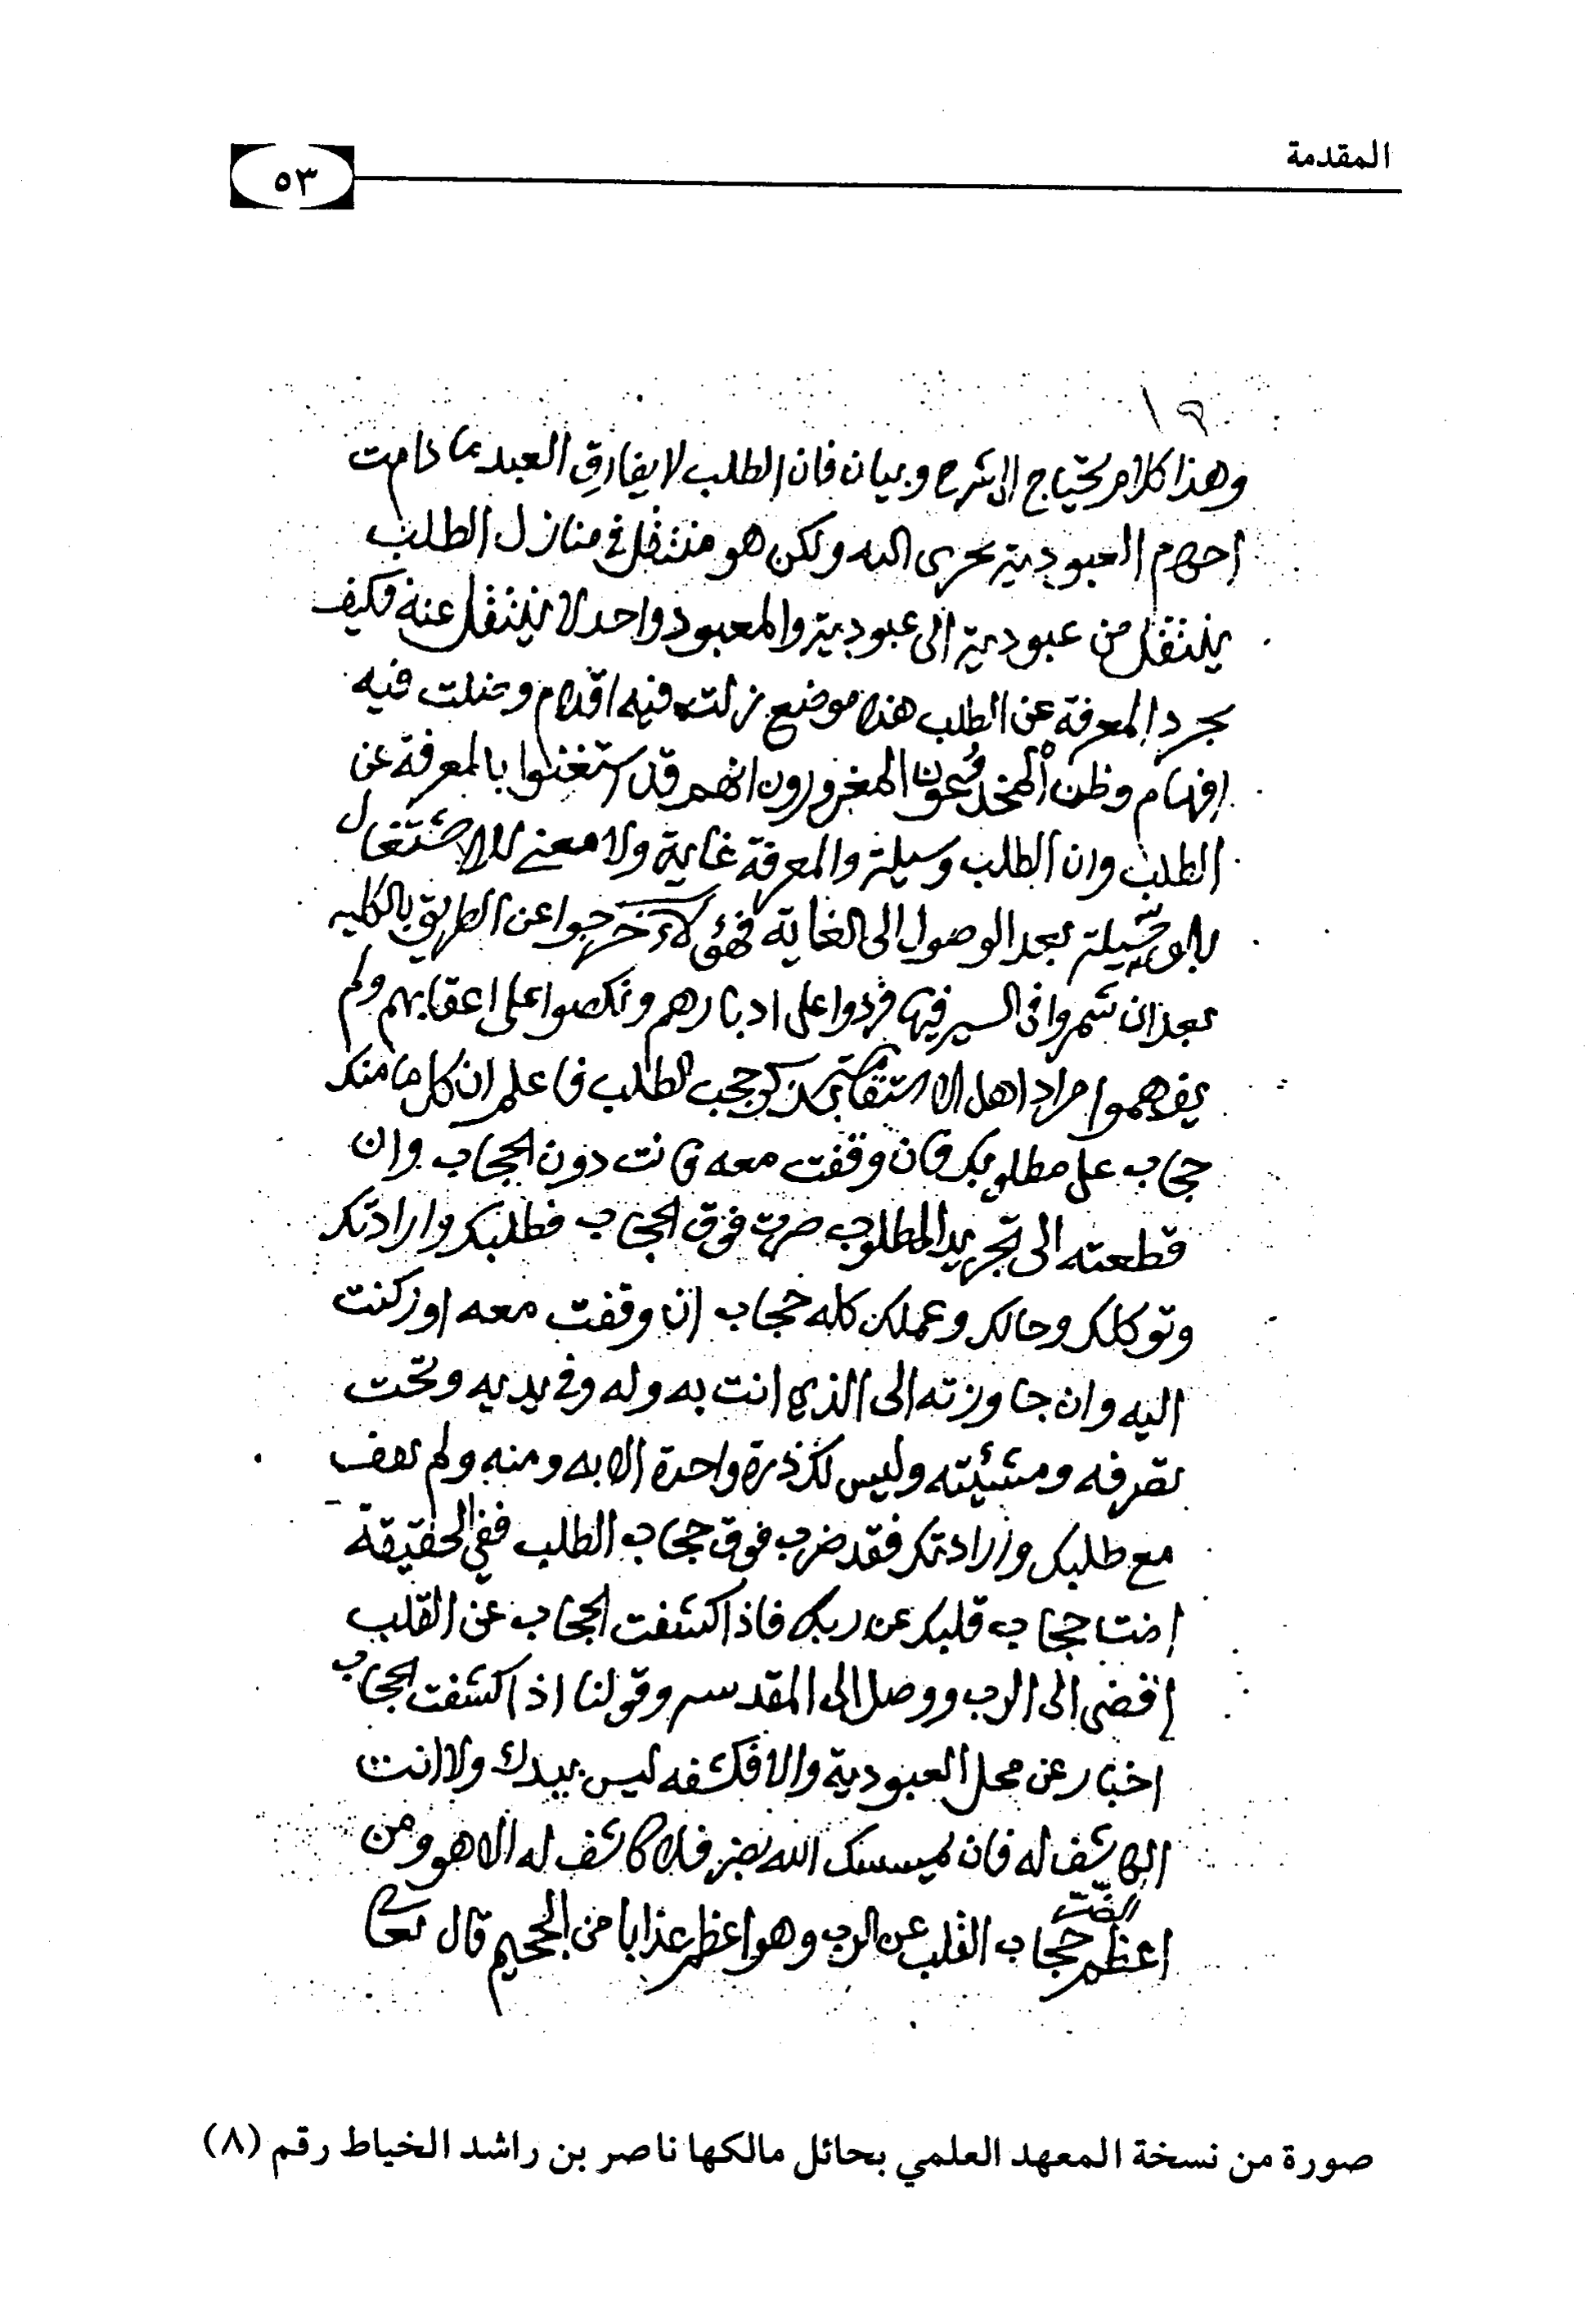 المقدمة
٥٣
١٩
وهذا كلام يحتاج الى شرح وبيان فان الطلب لا يفارق العبد ما دامت
احكام العبودية تجرى اليه ولكن هو منتقل في منازل الطلب
ينتقل من عبودية الى عبودية والمعبود واحد لا ينتقل عنه فكيف
تجرد المعرفة عن الطلب هذا موضع زلت فيه اقدام وضلت فيه
افهام وظن المخدوعون المغرورون انهم قد استغنوا بالمعرفة عن
الطلب وان الطلب وسيلة والمعرفة غاية ولا معنى للاشتغال
بالوسيلة بعد الوصول الى الغاية فهؤلاء خرجوا عن الطريق بالكليه
بعد ان شمروا في السير فيها فردوا على ادبارهم ونكصوا على اعقابهم ولم
يفهموا مراد اهل الاستقامة بذكر حجب الطلب فاعلم ان كل ما منك
حجاب على مطلوبك فان وقفت معه فانت دون الحجاب وان
قطعته الى تجريد المطلوب صرت فوق الحجاب فطلبك وارادتك
وتوكلك وحالك وعملك كله حجاب ان وقفت معه او ركنت
اليه وان جاوزته الى الذي انت به وله وفي يديه وتحت
تصرفه ومشيئته وليس لك ذرة واحدة الا به ومنه ولم تقف
مع طلبك وارادتك فقد ضرب فوق حجاب الطلب ففي الحقيقة
انت حجاب قلبك عن ربك فاذا كشفت الحجاب عن القلب
افضى الى الرب ووصل الى المقدس وقولنا اذا كشفت الحجاب
اخبار عن محل العبودية والا فكشفه ليس بيدك ولا انت
الكاشف له فان يمسسك الله بضر فلا كاشف له الا هو ومن
اعظم الضر حجاب القلب عن الرب وهو اعظم عذابا من الجحيم قال تعالى
صورة من نسخة المعهد العلمي بحائل مالكها ناصر بن راشد الخياط رقم (٨)